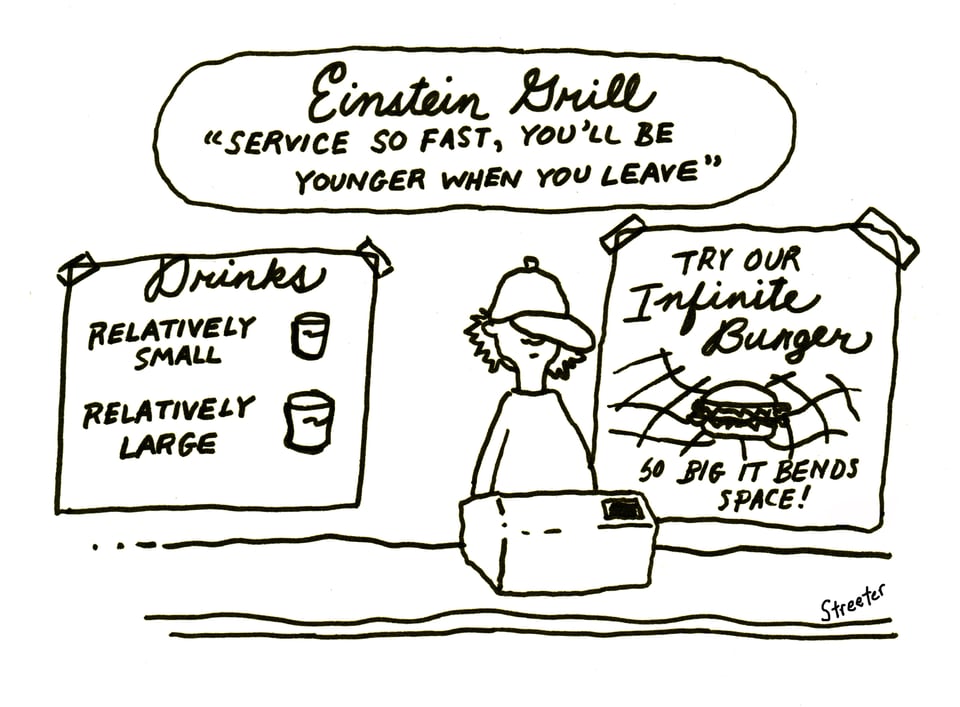 Einstein Grill
"SERVICE SO FAST, YOU'LL BE
YOUNGER WHEN YOU LEAVE"
Drinks
RELATIVELY
SMALL
RELATIVELY
LARGE
TRY OUR
Infinite
Burger
SO BIG IT BENDS
SPACE!
Streeter